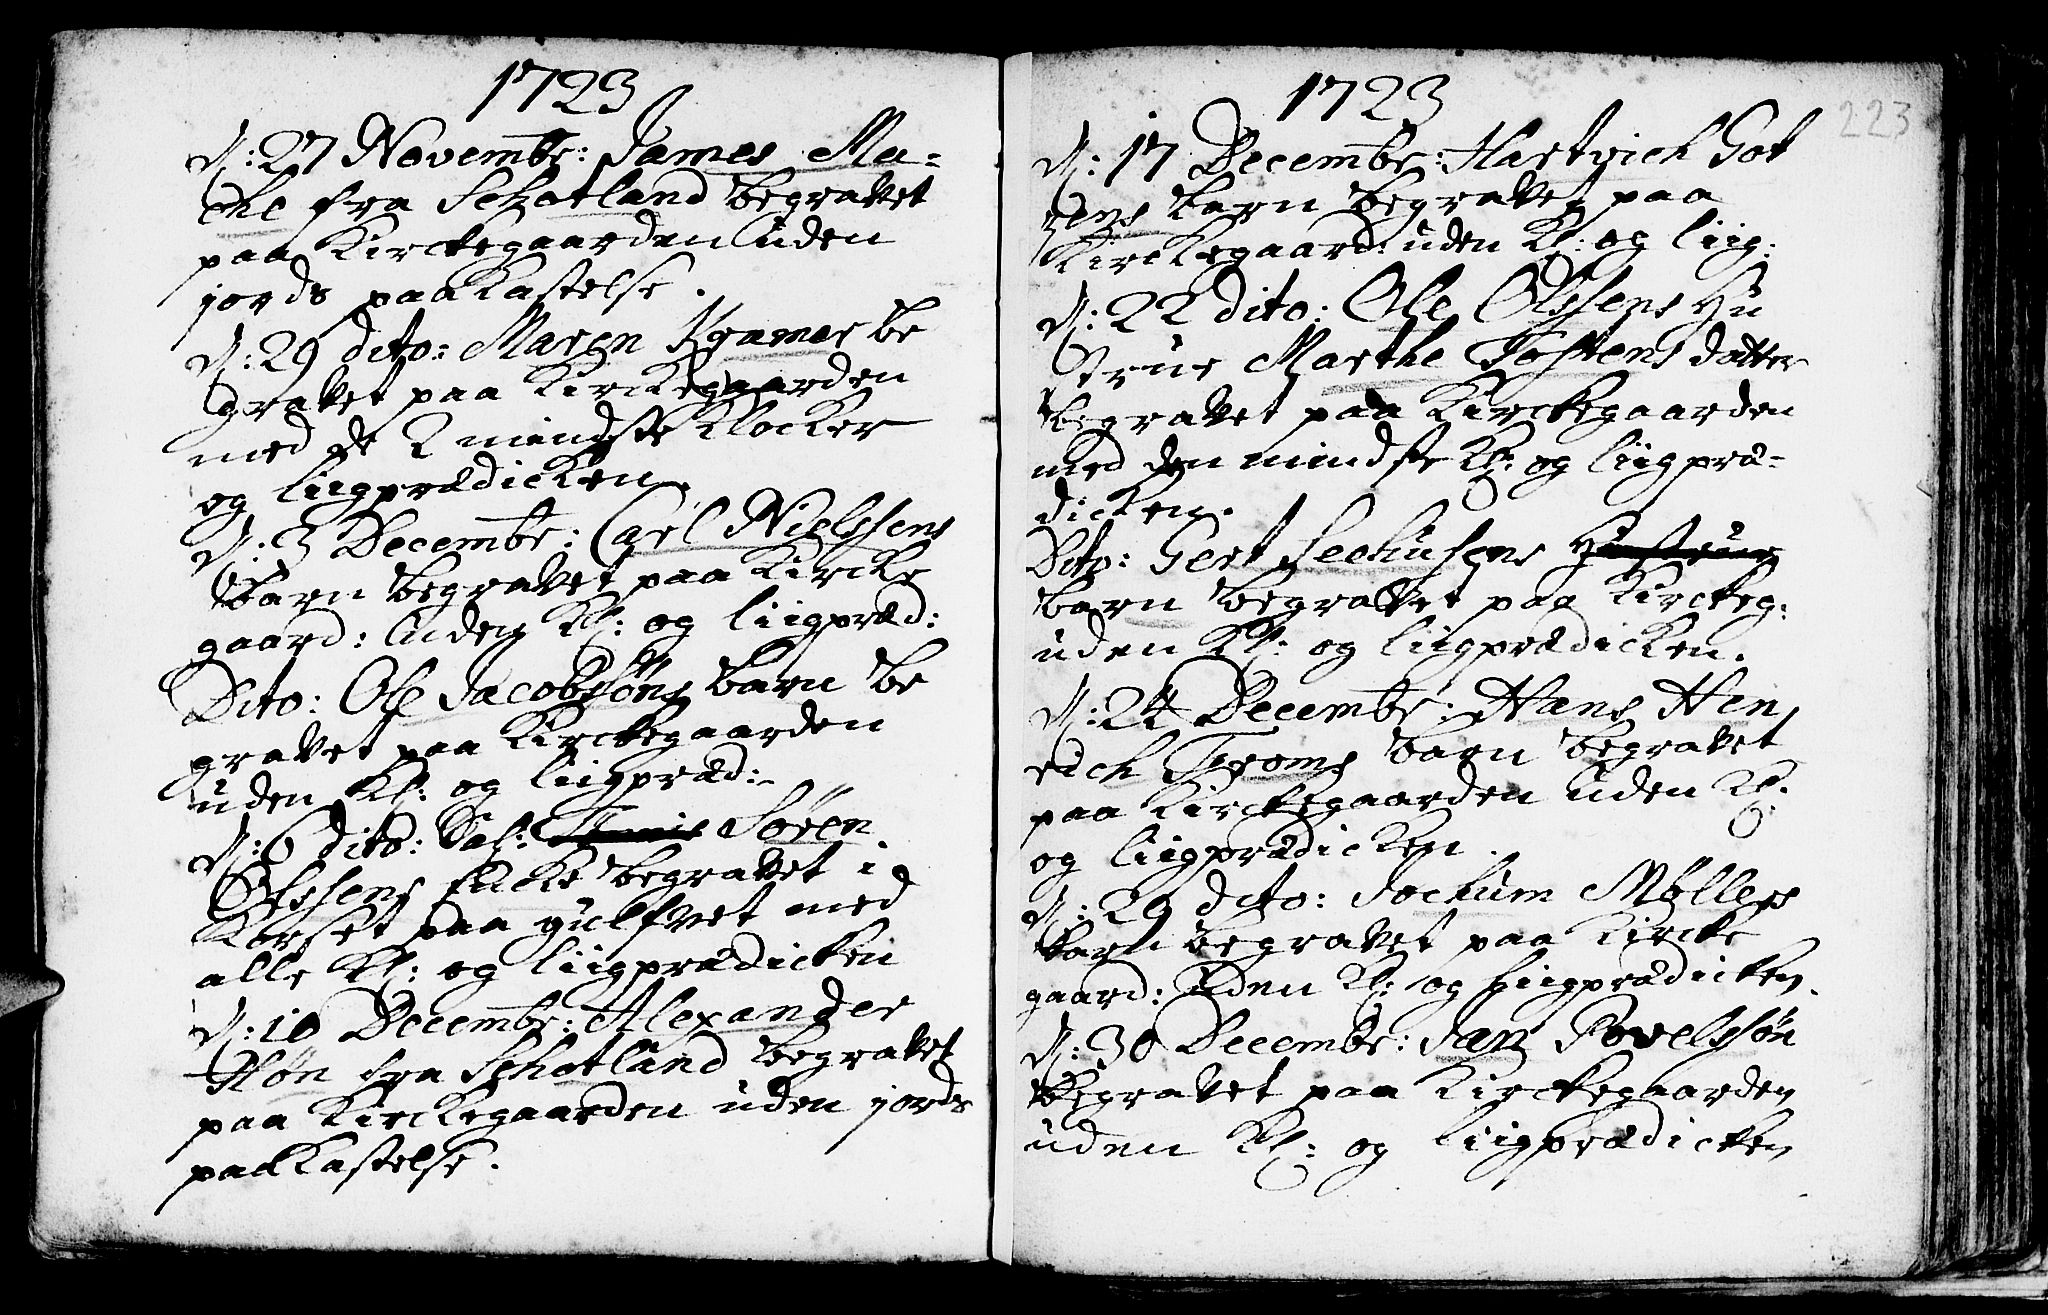 1723
d: 27 Novembr: James Ma-
che fra Schotland begravet
paa Kirckegaarden uden
jords paakastelse.
d: 29 dito: Maren Kramer be
gravet paa Kirckegaarden
med de 2 mindste klocker
og liigprædicken.
d: 3 Decembr: Carl Nielssens
barn begravet paa Kircke
gaard: uden Kl: og liigpræd:
Dito: Ole Jacobsøns barn be
gravet paa Kirckegaarden
uden Kl: og liigpræd:
d: 6 dito: Sal: Søren
Olssens Encke begravet i
Korset paa gulfvet med
alle Kl: og liigprædicken
d: 10 Decembr: Alexander
fra Schotland begravet
paa Kirckegaarden uden jords
paakastelse.
1723
223
d: 17 Decembr: Hartvich Got
zens barn begravet paa
Kirckegaard: uden Kl: og liig:
d: 22 dito: Ole Olssens Hu
strue Marthe Tostens datter
begravet paa Kirckegaarden
med den mindste Kl: og liigpræ-
dicken.
Dito: Gert Seehusens Hustrue
barn begravet paa Kirckeg:
uden Kl: og liigprædicken.
d: 24 Decembr: Hans Hen
rich Froms barn begravet
paa Kirckegaarden uden Kl:
og liigprædicken.
d: 29 dito: Jochum Møllers
barn begravet paa Kircke
gaard: uden Kl: og liigprædicken.
d: 30 Decembr: Jan Povelssøn
begravet paa Kirckegaarden
uden Kl: og liigprædicken